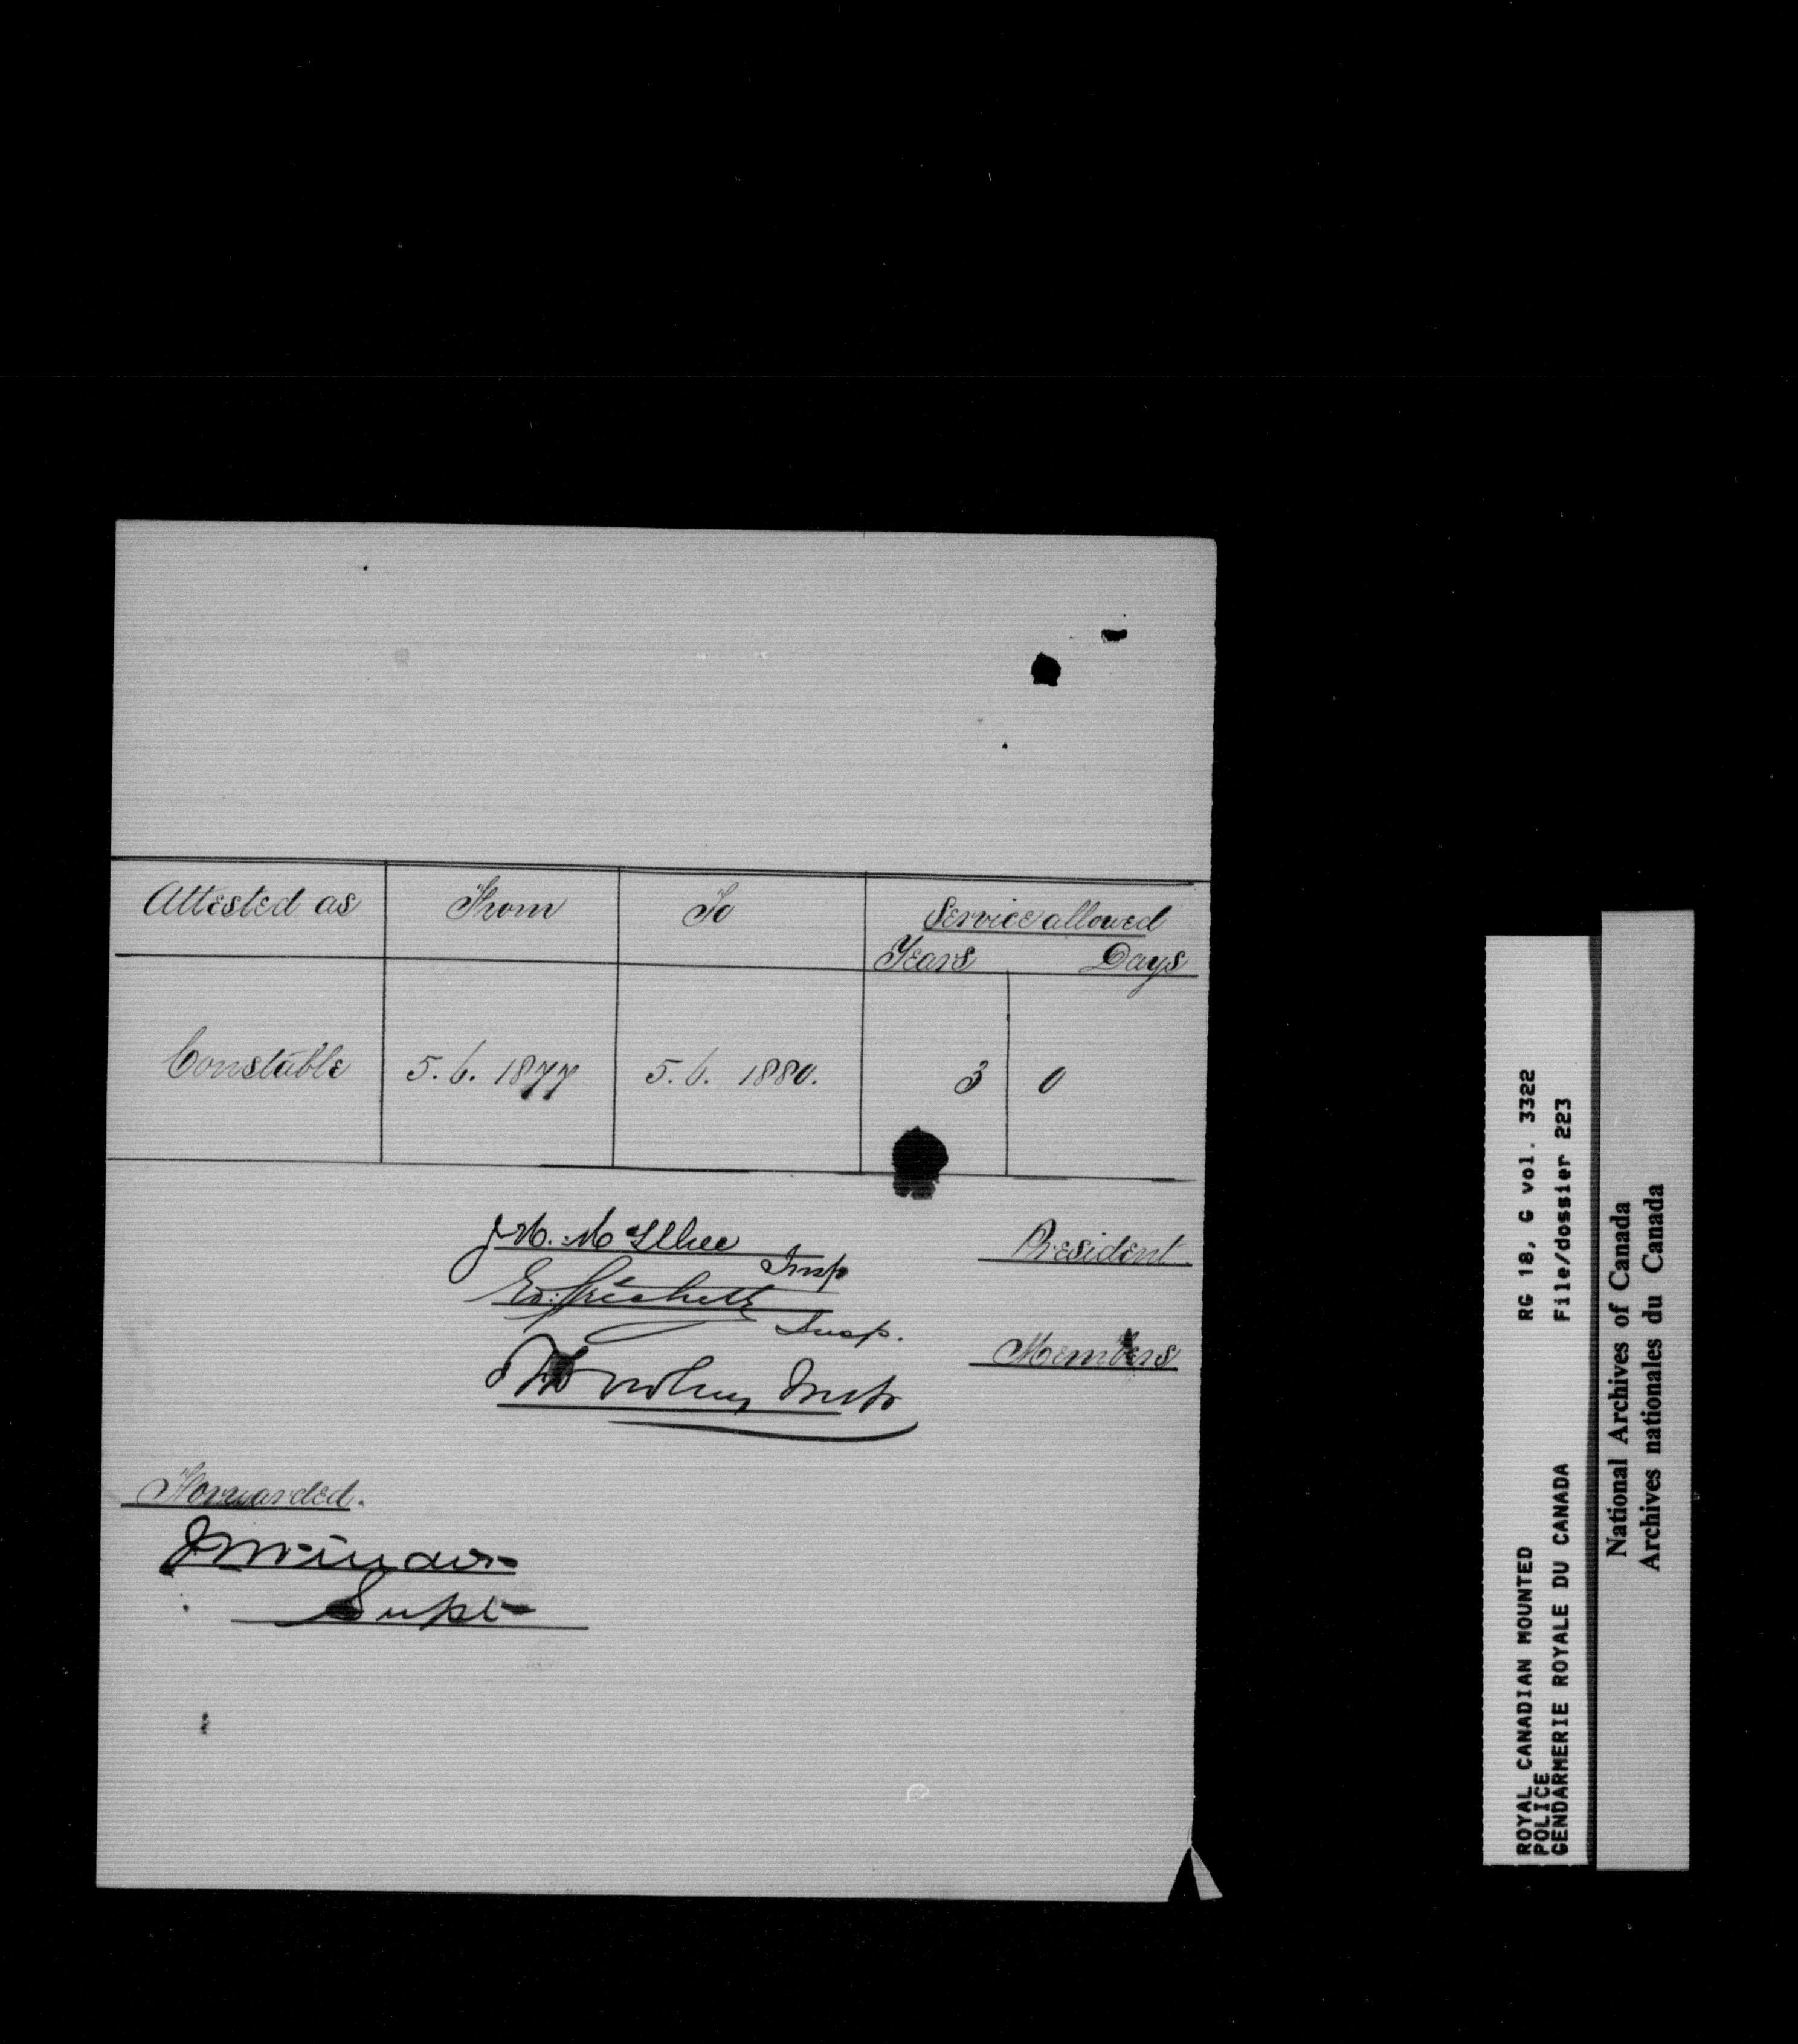 Attested as From To Service allowed
Years Days
Constable 5.6.1877 5.6.1880. 3 0
J.H. McIllree Insp President.
Ed: Frechette Insp.
Members
Insp
Forwarded.
Supt
ROYAL CANADIAN MOUNTED RG 18, G vol. 3322
POLICE
GENDARMERIE ROYALE DU CANADA File/dossier 223
National Archives of Canada
Archives nationales du Canada